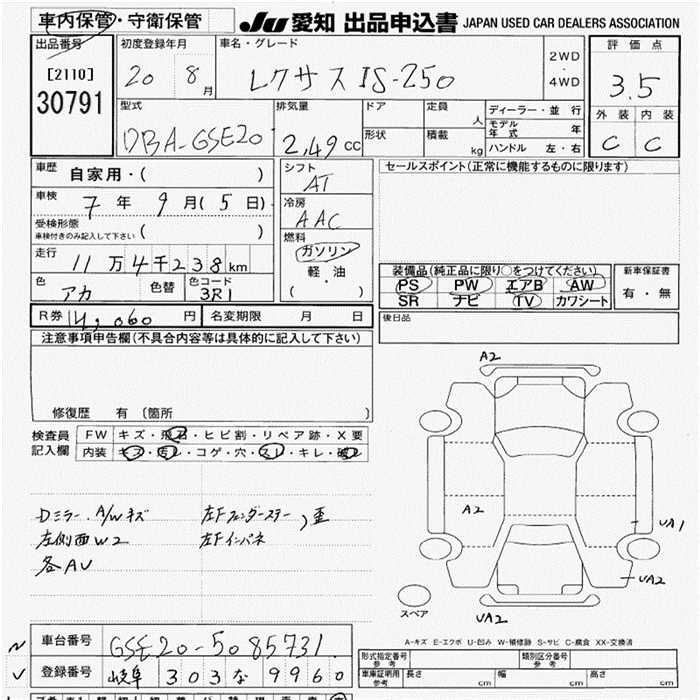 車内保管・守衛保管 JU 愛知 出品申込書 JAPAN USED CAR DEALERS ASSOCIATION
出品番号 初度登録年月 車名・グレード 2WD ・ 4WD 評価点
[2110] 20 8月 レクサス IS-250 3.5
30791 型式 排気量 ドア 定員 人 ディーラー・並行 外装 内装
DBA-GSE20 2,49 cc 形状 積載 kg モデル年式 年 C C
ハンドル 左・右
車歴 自家用・( ) シフト AT セールスポイント(正常に機能するものに限ります)
車検 7年 9月(5日) 冷房 AAC
受検形態 車検付きのみ記入して下さい ( ) 燃料 ガソリン
走行 11万4千238km 軽・油 装備品(純正品に限り○をつけてください) 新車保証書
色 アカ 色替 色コード 3R1 ( ) PS PW エアB AW 有・無
SR ナビ TV カワシート
R券 14,060円 名変期限 月 日 後日品
注意事項申告欄(不具合内容等は具体的に記入して下さい)
A2
修復歴 有〔箇所 〕
検査員 FW キズ・飛石・ヒビ割・リペア跡・X要
記入欄 内装 キズ・汚レ・コゲ・穴・スレ・キレ・破レ
Dミラー.A/Wキズ 左Fフェンダーステー、歪 A2
左側面W2 左Fインパネ UA1
各AU UA2
スペア UA2
A-キズ E-エクボ U-凹み W-補修跡 S-サビ C-腐食 XX-交換済
車台番号 GSE20-5085731 形式指定番号 参考 類別区分番号 参考
登録番号 岐阜 303 な 9960 車庫証明用 参考 長さ cm 幅 cm 高さ cm